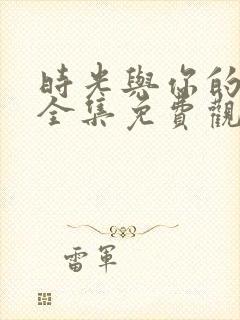 時光與你的
全集免費觀
雷軍